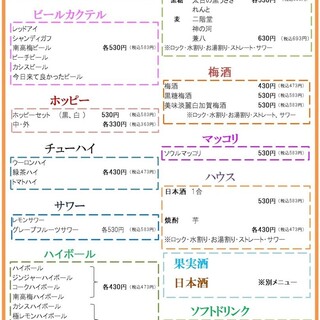 ビールカクテル
レッドアイ
シャンディガフ
南高梅ビール 各530円 (税込583円)
ピーチビール
カシスビール
今日来て良かったビール
ホッピー
ホッピーセット (黒, 白) 530円 (税込583円)
中・外 各330円 (税込363円)
チューハイ
ウーロンハイ
緑茶ハイ 各430円 (税込473円)
トマトハイ
サワー
レモンサワー
グレープフルーツサワー 各530円 (税込583円)
ハイボール
ハイボール
ジンジャーハイボール
コークハイボール 各430円 (税込473円)
南高梅ハイボール
カシスハイボール
極レモンハイボール
れんと
麦 二階堂
神の河
兼八 630円 (税込693円)
※ロック・水割り・お湯割り・ストレート・サワー
梅酒
梅酒 430円 (税込473円)
黒糖梅酒 530円 (税込583円)
美味淡麗白加賀梅酒 530円 (税込583円)
※ロック・水割り・お湯割り・ストレート, サワー
マッコリ
ソウルマッコリ 530円 (税込583円)
ハウス
日本酒 1合
530円 (税込583円)
焼酎 芋
各430円 (税込473円)
※ロック・水割り・お湯割り・ストレート・サワー
果実酒
日本酒 ※別メニュー
ソフトドリンク